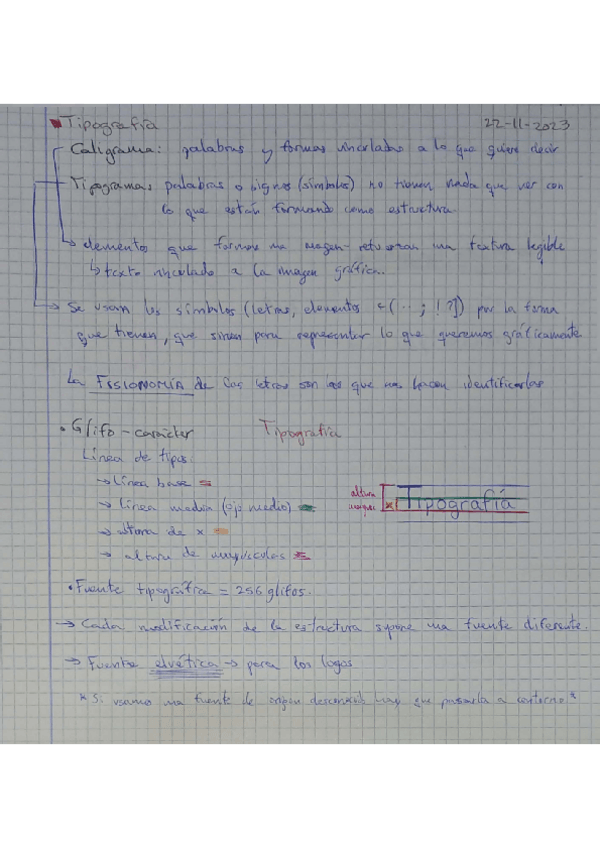 Tipografía 22-11-2023
Caligrama: palabras y formas vinculadas a lo que quiere decir
Tipogramas palabras o signos (símbolos) no tienen nada que ver con
lo que están formando como estructura.
elementos que forman una imagen - refuerzan una textura legible
↳ texto vinculado a la imagen gráfica.
→ Se usan los símbolos (letras, elementos ; ! ?]) por la forma
que tienen, que sirven para representar lo que queremos gráficamente
La FISIONOMÍA de las letras son las que nos hacen identificarlas
• Glifo - carácter Tipografía
Línea de tipos:
→ Línea base
→ Línea media (ojo medio)
→ altura de x
→ altura de mayúsculas
altura
x Tipografía
• Fuente tipográfica = 256 glifos.
→ Cada modificación de la estructura supone una fuente diferente.
→ Fuente elvética → para los logos
* Si usamos una fuente de origen desconocido hay que pasarla a contorno *